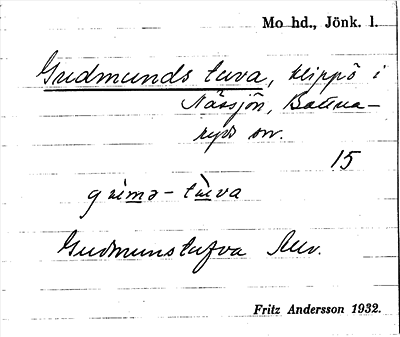 Mo hd., Jönk. l.
Gudmunds tuva, klippö i
Nässjön, Bottna-
ryds sn.
15
grimə-tùva
Gudmunstufva Auv.
Fritz Andersson 1932.